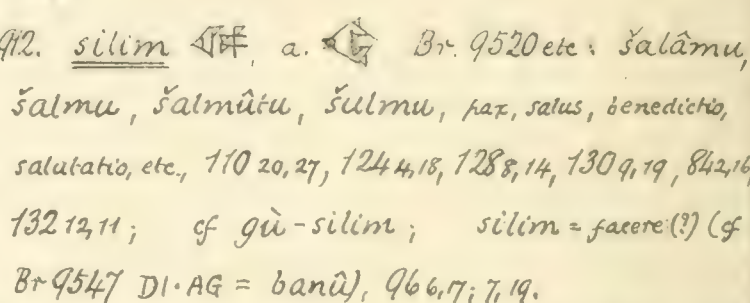 912. silim 𒁲, a. Br. 9520 etc: šalâmu,
šalmu, šalmûtu, šulmu, pax, salus, benedictio,
salutatio, etc., 110 20,27, 124 4,18, 128 8,14, 130 9,19, 84 2,16
132 12,11; cf gù-silim; silim = facere (?) (cf
Br 9547 DI·AG = banû), 96 6,7; 7,19.